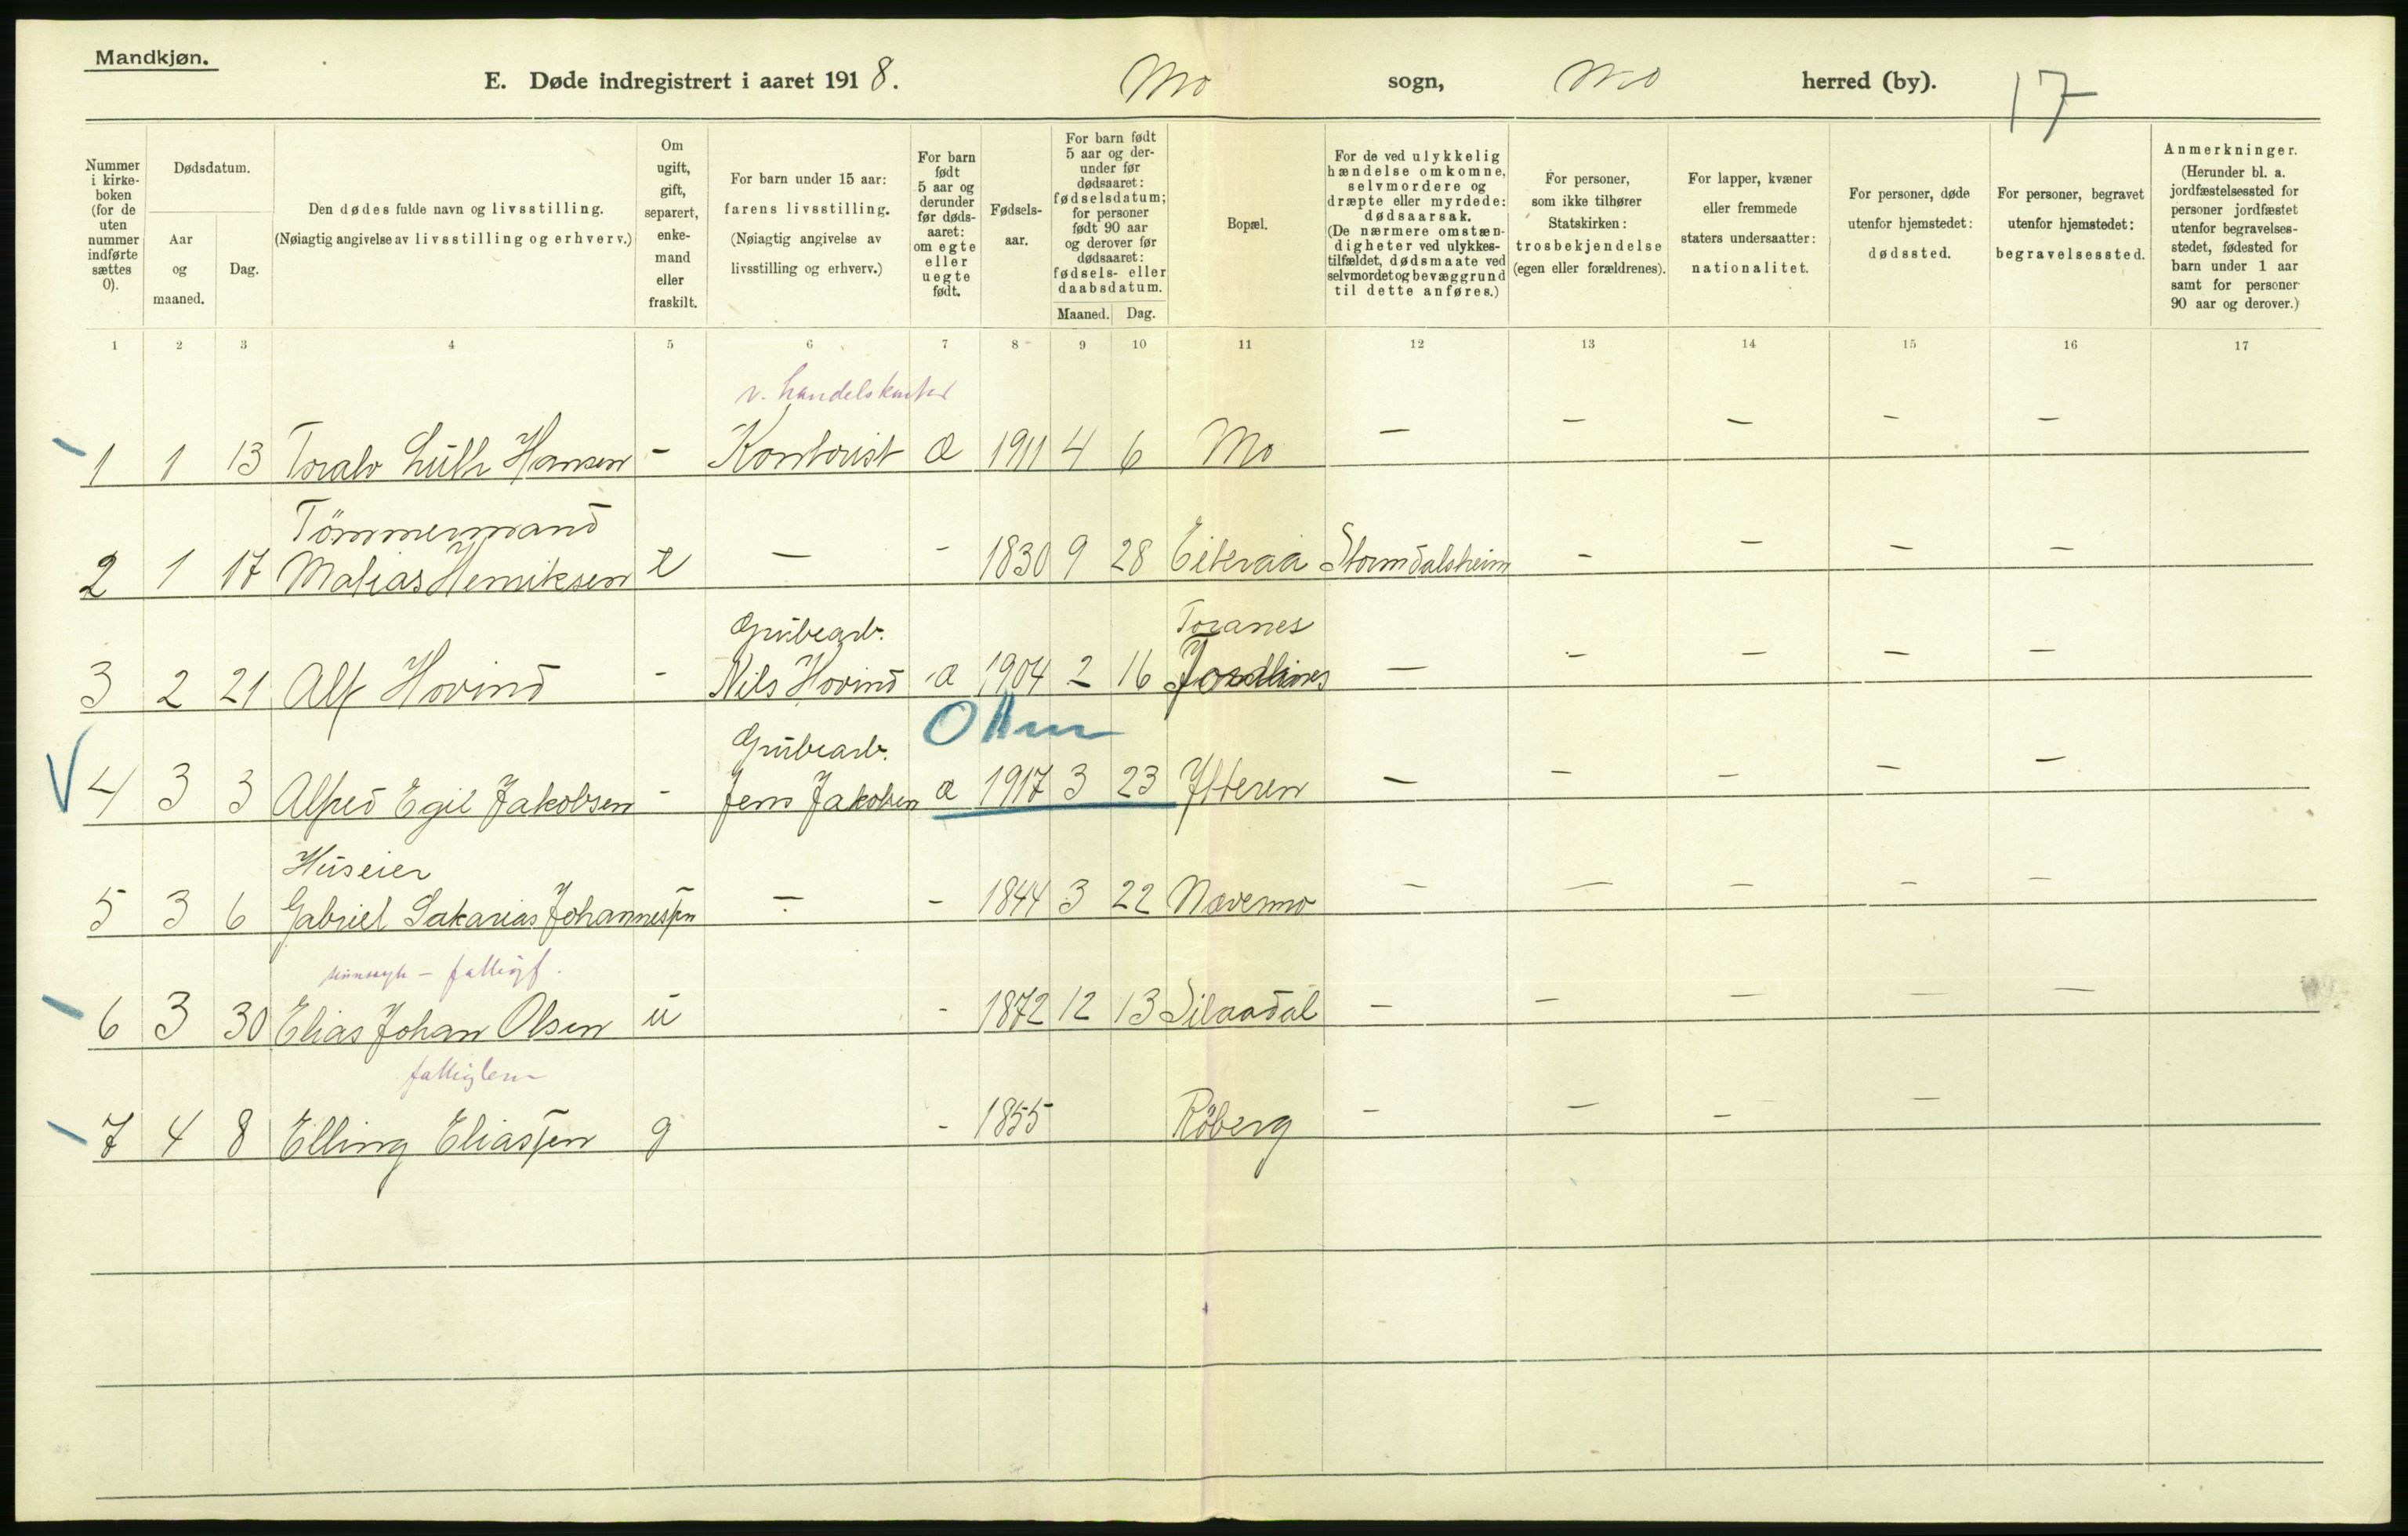 Mandkjøn.
E. Døde indregistrert i aaret 1918. Mo sogn, Mo herred (by). 17
Nummer i kirke-boken (for de uten nummer indførte sættes 0).
Dødsdatum.
Aar og maaned.
Dag.
Den dødes fulde navn og livsstilling.
(Nøiagtig angivelse av livsstilling og erhverv.)
Om ugift, gift, separert, enke-mand eller fraskilt.
For barn under 15 aar: farens livsstilling.
(Nøiagtig angivelse av livsstilling og erhverv.)
For barn født 5 aar og derunder før døds-aaret: om egte eller uegte født.
Fødsels-aar.
For barn født 5 aar og der-under før dødsaaret: fødselsdatum; for personer født 90 aar og derover før dødsaaret: fødsels- eller daabsdatum.
Maaned. Dag.
Bopæl.
For de ved ulykkelig hændelse omkomne, selvmordere og dræpte eller myrdede: dødsaarsak.
(De nærmere omstæn-digheter ved ulykkes-tilfældet, dødsmaate ved selvmordet og bevæggrund til dette anføres.)
For personer, som ikke tilhører Statskirken: trosbekjendelse (egen eller forældrenes).
For lapper, kvæner eller fremmede staters undersaatter: nationalitet.
For personer, døde utenfor hjemstedet: dødssted.
For personer, begravet utenfor hjemstedet: begravelsessted.
Anmerkninger.
(Herunder bl. a. jordfæstelsessted for personer jordfæstet utenfor begravelses-stedet, fødested for barn under 1 aar samt for personer 90 aar og derover.)
1 2 3 4 5 6 7 8 9 10 11 12 13 14 15 16 17
v. handelskontor
1 1 13 Toralv Lüth Hansen - Kontorist a 1911 4 6 Mo - - - - -
Tömmermand
2 1 17 Matias Henriksen e - - 1830 9 28 Eiteraa Stormdalsheim - - - -
Grubearb. Toranes
3 2 21 Alf Hovind - Nils Hovind a 1904 2 16 - - - - -
Grubearb.
4 3 3 Alfred Egil Jakobsen - Jens Jakobsen a 1917 3 23 Ytteren - - - - -
Huseier
5 3 6 Gabriel Sakarias Johannessen - - 1844 3 22 Nævermo - - - - -
sinnsyk - fattigf.
6 3 30 Elias Johan Olsen u - 1872 12 13 - - - - -
fattiglem
7 4 8 Elling Eliassen g - 1855 Röberg - - - -